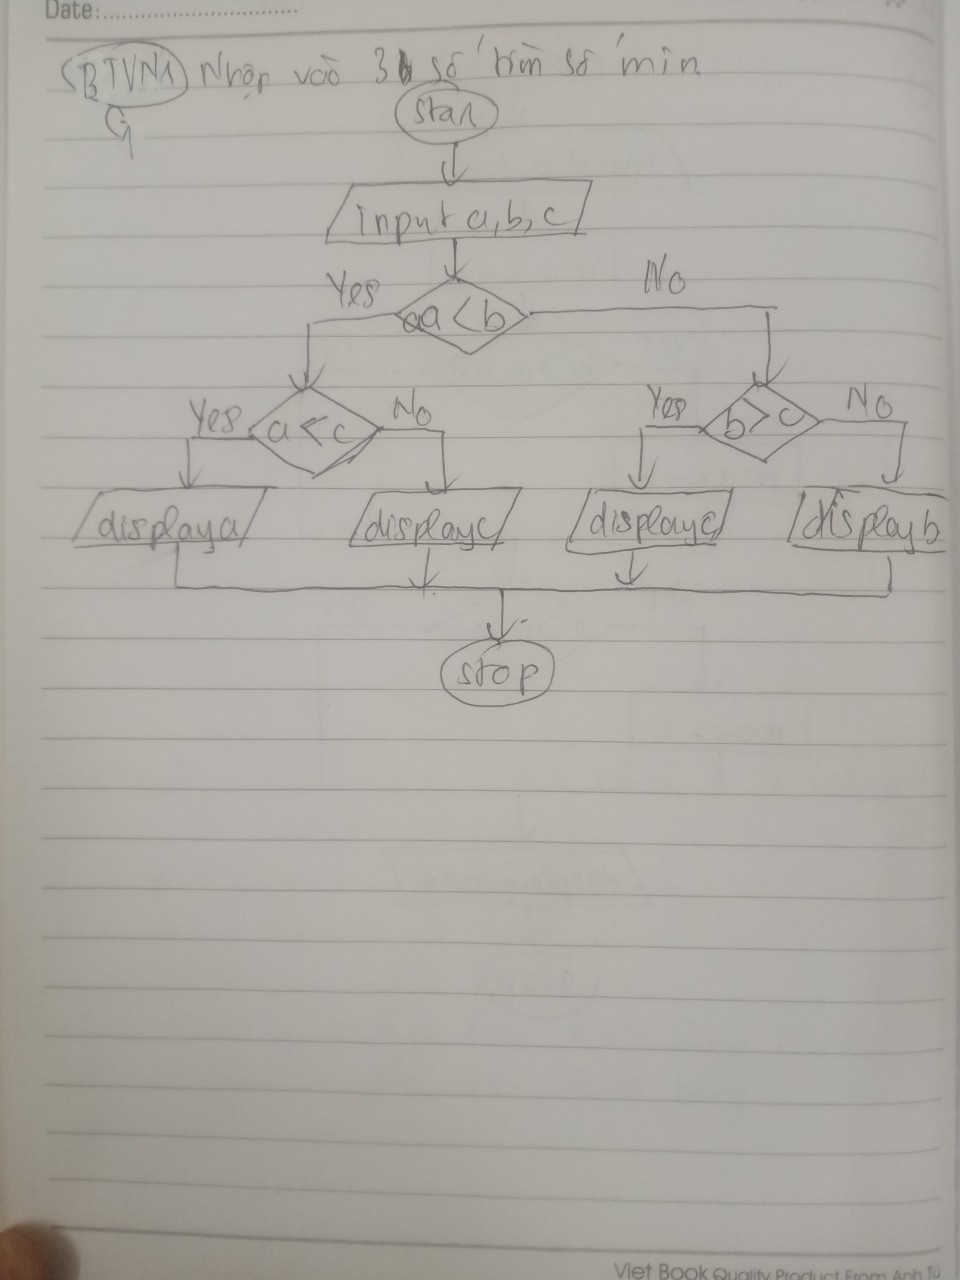 Date:
BTVN1 Nhập vào 3 số tìm số min
Start
input a, b, c
Yes
No
a < b
Yes
a < c
No
Yes
b > c
No
display a
display c
display c
display b
stop
Viet Book Quality Product From Anh Tú